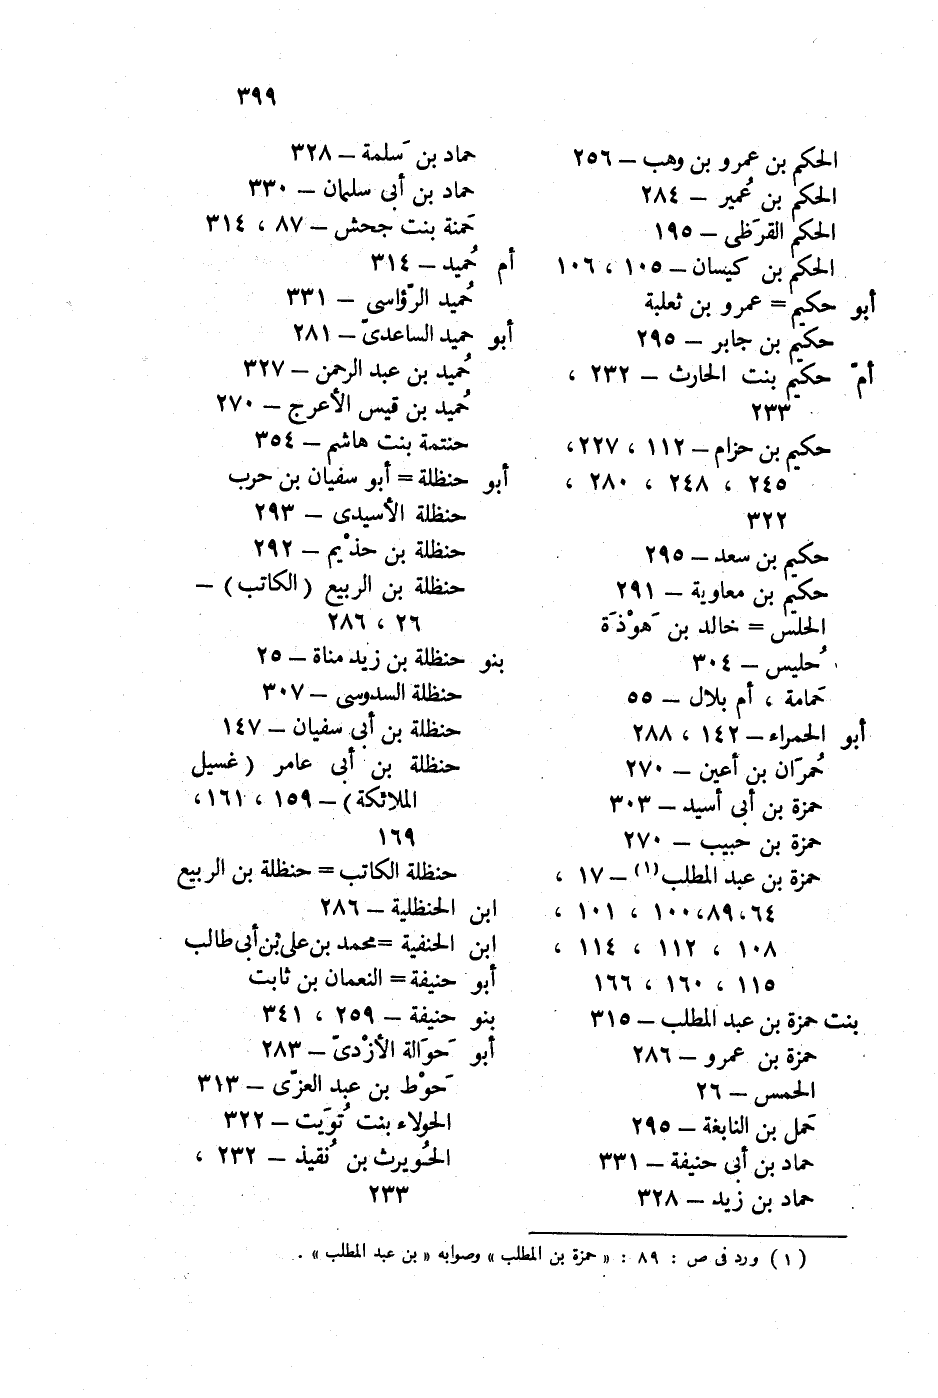 ٣٩٩
الحكم بن عمرو بن وهب – ٢٥٦
الحكم بن عُمير – ٢٨٤
الحكم القرَظى – ١٩٥
الحكم بن كيسان – ١٠٥ ، ١٠٦
أبو حكيم = عمرو بن ثعلبة
حكيم بن جابر – ٢٩٥
أمّ حكيم بنت الحارث – ٢٣٢ ،
٢٣٣
حكيم بن حزام – ١١٢ ، ٢٢٧ ،
٢٤٥ ، ٢٤٨ ، ٢٨٠ ،
٣٢٢
حكيم بن سعد – ٢٩٥
حكيم بن معاوية – ٢٩١
الحلس = خالد بن هَوْذَة
حُليس – ٣٠٤
حَمامة ، أم بلال – ٥٥
أبو الحمراء – ١٤٢ ، ٢٨٨
حُمرَان بن أعين – ٢٧٠
حمزة بن أبى أسيد – ٣٠٣
حمزة بن حبيب – ٢٧٠
حمزة بن عبد المطلب (١) – ١٧ ،
٦٤ ، ٨٩ ، ١٠٠ ، ١٠١ ،
١٠٨ ، ١١٢ ، ١١٤ ،
١١٥ ، ١٦٠ ، ١٦٦
بنت حمزة بن عبد المطلب – ٣١٥
حمزة بن عمرو – ٢٨٦
الحمس – ٢٦
حَمل بن النابغة – ٢٩٥
حماد بن أبى حنيفة – ٣٣١
حماد بن زيد – ٣٢٨
حماد بن سَلمة – ٣٢٨
حماد بن أبى سلمان – ٣٣٠
حَمنة بنت جحش – ٨٧ ، ٣١٤
أم حُميد – ٣١٤
حُميد الرّؤاسى – ٣٣١
أبو حميد الساعدىّ – ٢٨١
حُميد بن عبد الرحمن – ٣٢٧
حُميد بن قيس الأعرج – ٢٧٠
حنتمة بنت هاشم – ٣٥٤
أبو حنظلة = أبو سفيان بن حرب
حنظلة الأسيدى – ٢٩٣
حنظلة بن حذْيم – ٢٩٢
حنظلة بن الربيع (الكاتب) –
٢٦ ، ٢٨٦
بنو حنظلة بن زيد مناة – ٢٥
حنظلة السدوسى – ٣٠٧
حنظلة بن أبى سفيان – ١٤٧
حنظلة بن أبى عامر (غسيل
الملائكة) – ١٥٩ ، ١٦١ ،
١٦٩
حنظلة الكاتب = حنظلة بن الربيع
ابن الحنظلية – ٢٨٦
ابن الحنفية = محمد بن على بن أبى طالب
أبو حنيفة = النعمان بن ثابت
بنو حنيفة – ٢٥٩ ، ٣٤١
أبو حَوَالة الأزْدىّ – ٢٨٣
حَوْط بن عبد العزّى – ٣١٣
الحولاء بنت تُوَيت – ٣٢٢
الحُويرث بن نُقيذ – ٢٣٢ ،
٢٣٣
(١) ورد فى ص : ٨٩ : « حمزة بن المطلب » وصوابه « بن عبد المطلب » .